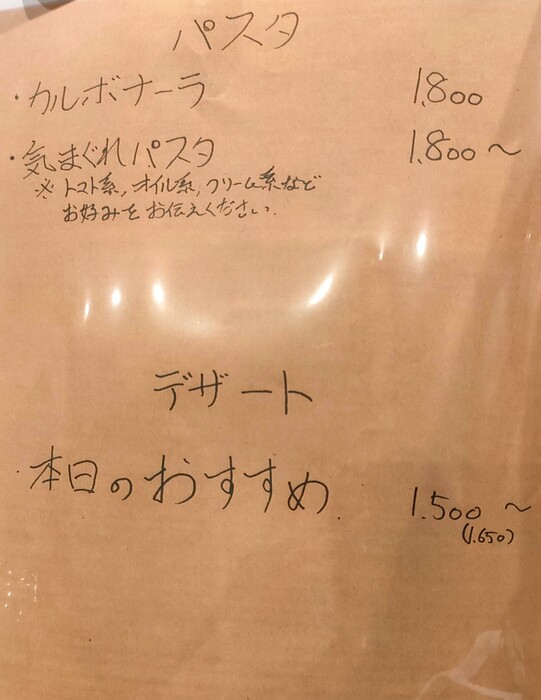 パスタ
・カルボナーラ 1.800
・気まぐれパスタ 1.800〜
※トマト系,オイル系,クリーム系など
お好みをお伝えください.
デザート
・本日のおすすめ. 1.500〜
(1.650)